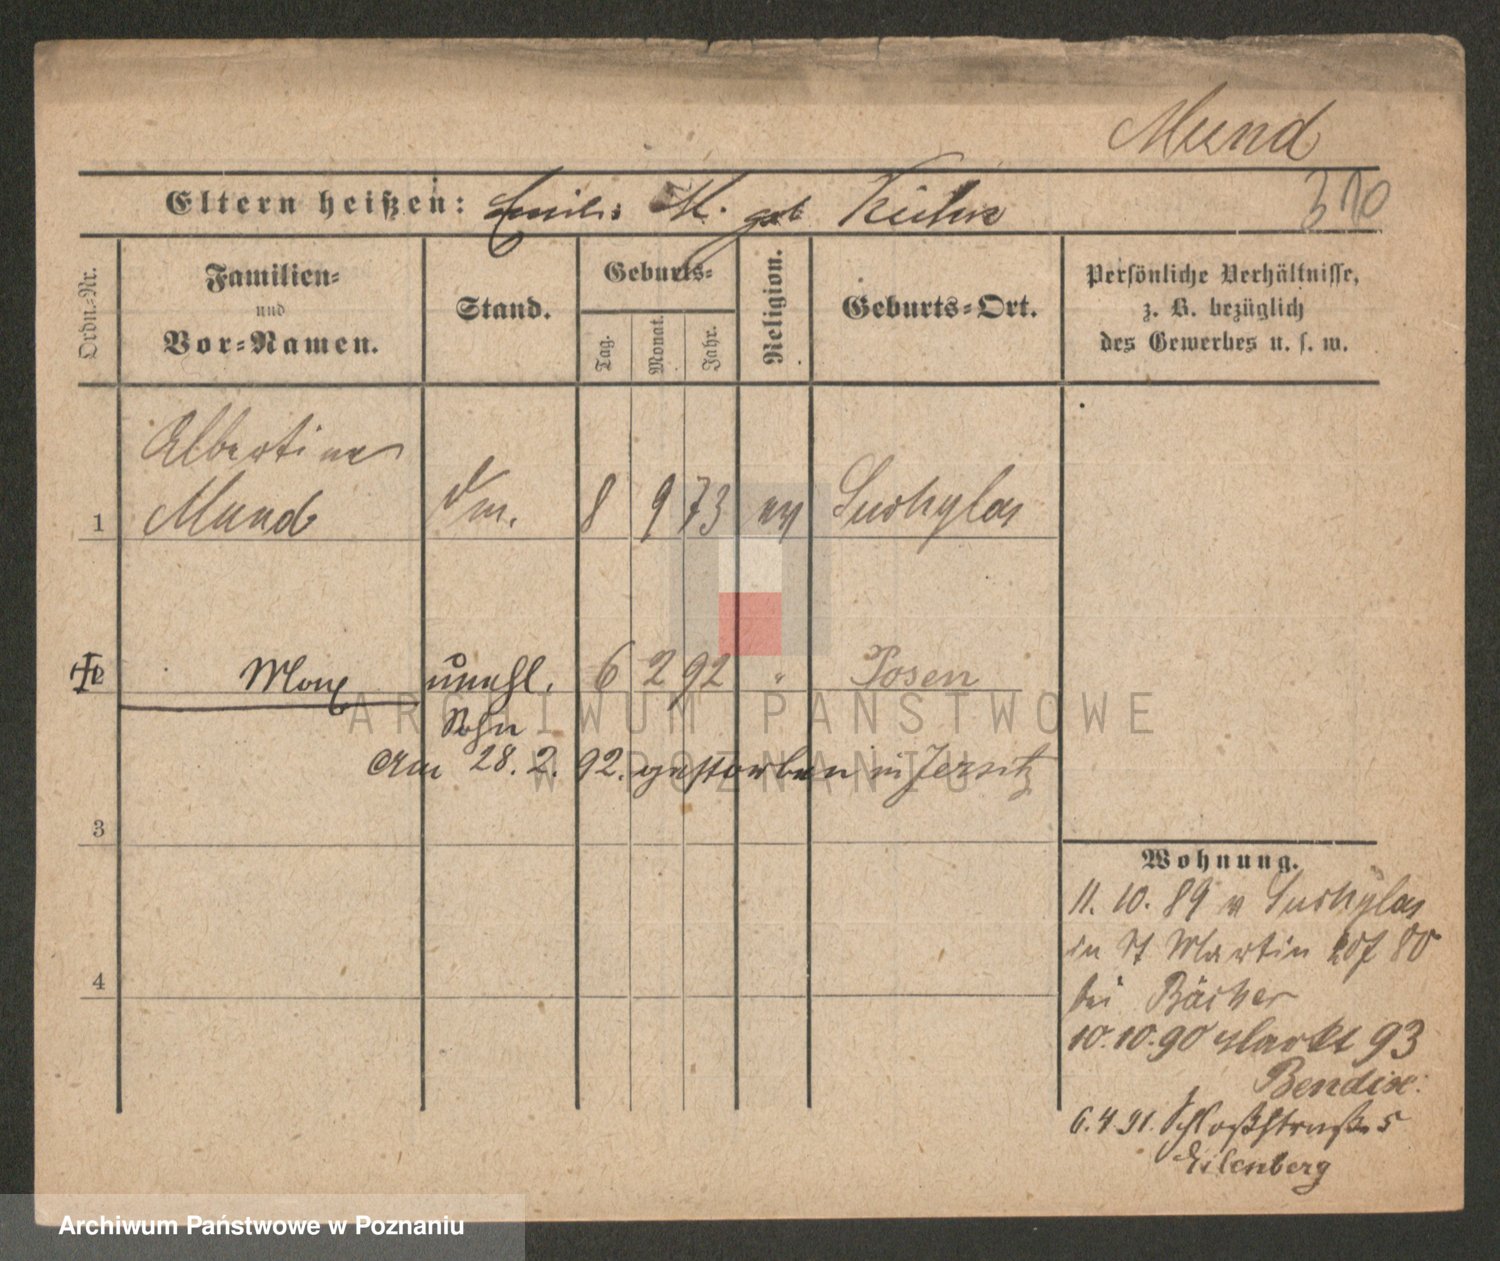 Mund
Eltern heißen: Emilie M. geb Kühn
310
Ordn.=Nr.
Familien=
und
Vor=Namen.
Stand.
Geburts=
Tag.
Monat.
Jahr.
Religion.
Geburts=Ort.
Persönliche Verhältnisse,
z. B. bezüglich
des Gewerbes u. s. w.
Albertine
1 Mund 8 9 73 ev Suchylas
2 Max unehl. 6 2 92 " Posen
Sohn
Am 28. 2. 92. gestorben in Jersitz
3
4
Wohnung.
11. 10. 89 v Suchylas
in St Martin 80
bei Bächer
10.10.90 Markt 93
Bendix.
6.4.91. Schloßstraße 5
Eilenberg
ARCHIWUM PAŃSTWOWE
W POZNANIU
Archiwum Państwowe w Poznaniu